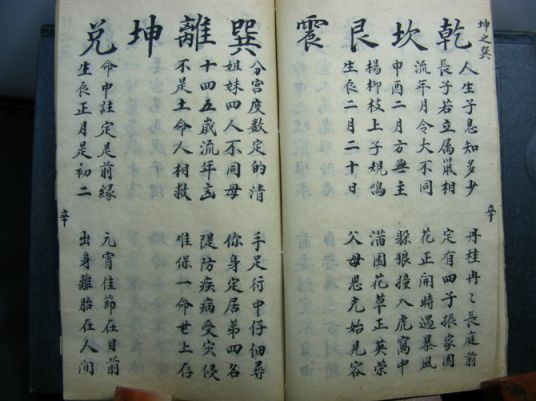 坤之巽
乾
人生子息知多少
丹桂冉々長庭前
長子若立属鼠相
定有四子振家園
坎
流年月令大不同
花正開時遇暴風
申酉二月方無主
躲狼撞入虎窩中
艮
楊柳枝上子規鳴
滿園花草正英荣
生辰二月二十日
父母恩 始見容
震
巽
分宮度数定的清
手足行中仔細尋
姐妹四人不同母
你身定居弟四名
離
十四五歲流年
隄防疾病受灾侵
不是土命人相救
难保一命世上存
坤
兌
命中註定是前緣
元宵佳節在目前
生辰正月是初二
出身離胎在人間